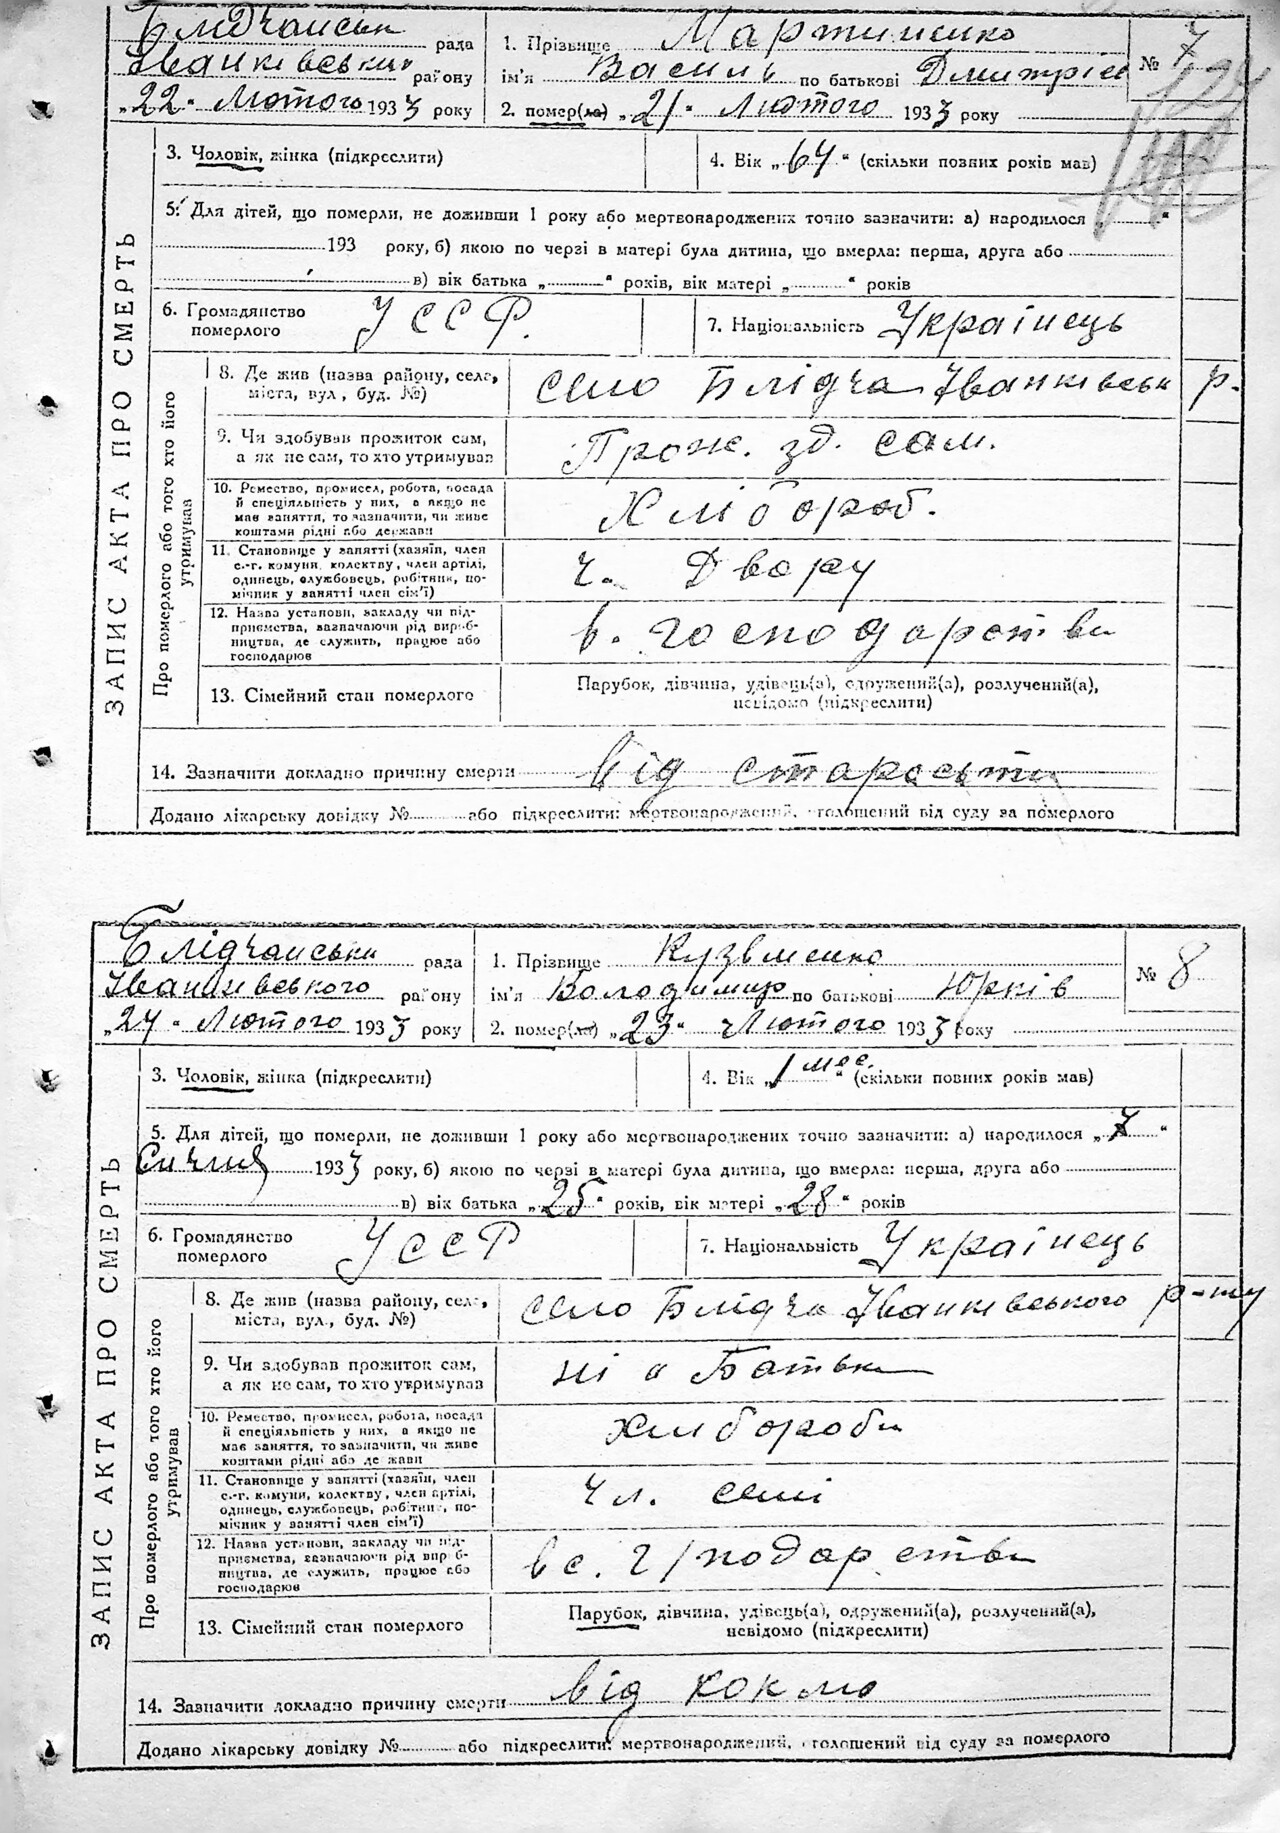 Блідчанська рада
Іванківського району
„22“ Лютого 1933 року
1. Прізвище Мартиненко
ім'я Василь по батькові Дмитрієв
2. помер(ла) „21“ Лютого 1933 року
№ 7
124
ЗАПИС АКТА ПРО СМЕРТЬ
3. Чоловік, жінка (підкреслити)
4. Вік „64“ (скільки повних років мав)
5. Для дітей, що померли, не доживши 1 року або мертвонароджених точно зазначити: а) народилося „ “
193 року, б) якою по черзі в матері була дитина, що вмерла: перша, друга або
в) вік батька „ “ років, вік матері „ “ років
6. Громадянство
померлого
УССР.
7. Національність Українець
Про померлого або того хто його
утримував
8. Де жив (назва району, села,
міста, вул., буд. №)
село Блідча Іванківськ р.
9. Чи здобував прожиток сам,
а як не сам, то хто утримував
Прож. зд. сам.
10. Ремество, промисел, робота, посада
й спеціяльність у них, а якщо не
мав заняття, то зазначити, чи живе
коштами рідні або держави
Хлібороб.
11. Становище у занятті (хазяїн, член
с.-г. комуни, колективу, член артілі,
одинець, службовець, робітник, по-
мічник у занятті член сім'ї)
ч. Двору
12. Назва установи, закладу чи під-
приємства, зазначаючи рід вироб-
ництва, де служить, працює або
господарює
в. господарстви
13. Сімейний стан померлого
Парубок, дівчина, удівець(а), одружений(а), розлучений(а),
невідомо (підкреслити)
14. Зазначити докладно причину смерти від старости
Додано лікарську довідку № або підкреслити: мертвонароджений, оголошений від суду за померлого
Блідчанськи рада
Іванківського району
„24“ Лютого 1933 року
1. Прізвище Кузьменко
ім'я Володимир по батькові Юрків
2. помер(ла) „23“ Лютого 1933 року
№ 8
ЗАПИС АКТА ПРО СМЕРТЬ
3. Чоловік, жінка (підкреслити)
4. Вік „1 мес.“ (скільки повних років мав)
5. Для дітей, що померли, не доживши 1 року або мертвонароджених точно зазначити: а) народилося „7“
Січня 1933 року, б) якою по черзі в матері була дитина, що вмерла: перша, друга або
в) вік батька „25“ років, вік матері „28“ років
6. Громадянство
померлого
УССР
7. Національність Українець
Про померлого або того хто його
утримував
8. Де жив (назва району, села,
міста, вул., буд. №)
село Блідча Іванківського р-ну
9. Чи здобував прожиток сам,
а як не сам, то хто утримував
ні а Батьки
10. Ремество, промисел, робота, посада
й спеціяльність у них, а якщо не
мав заняття, то зазначити, чи живе
коштами рідні або держави
Хлібороби
11. Становище у занятті (хазяїн, член
с.-г. комуни, колективу, член артілі,
одинець, службовець, робітник, по-
мічник у занятті член сім'ї)
чл. семі
12. Назва установи, закладу чи під-
приємства, зазначаючи рід вироб-
ництва, де служить, працює або
господарює
в с. господарстви
13. Сімейний стан померлого
Парубок, дівчина, удівець(а), одружений(а), розлучений(а),
невідомо (підкреслити)
14. Зазначити докладно причину смерти від коклю
Додано лікарську довідку № або підкреслити: мертвонароджений, оголошений від суду за померлого